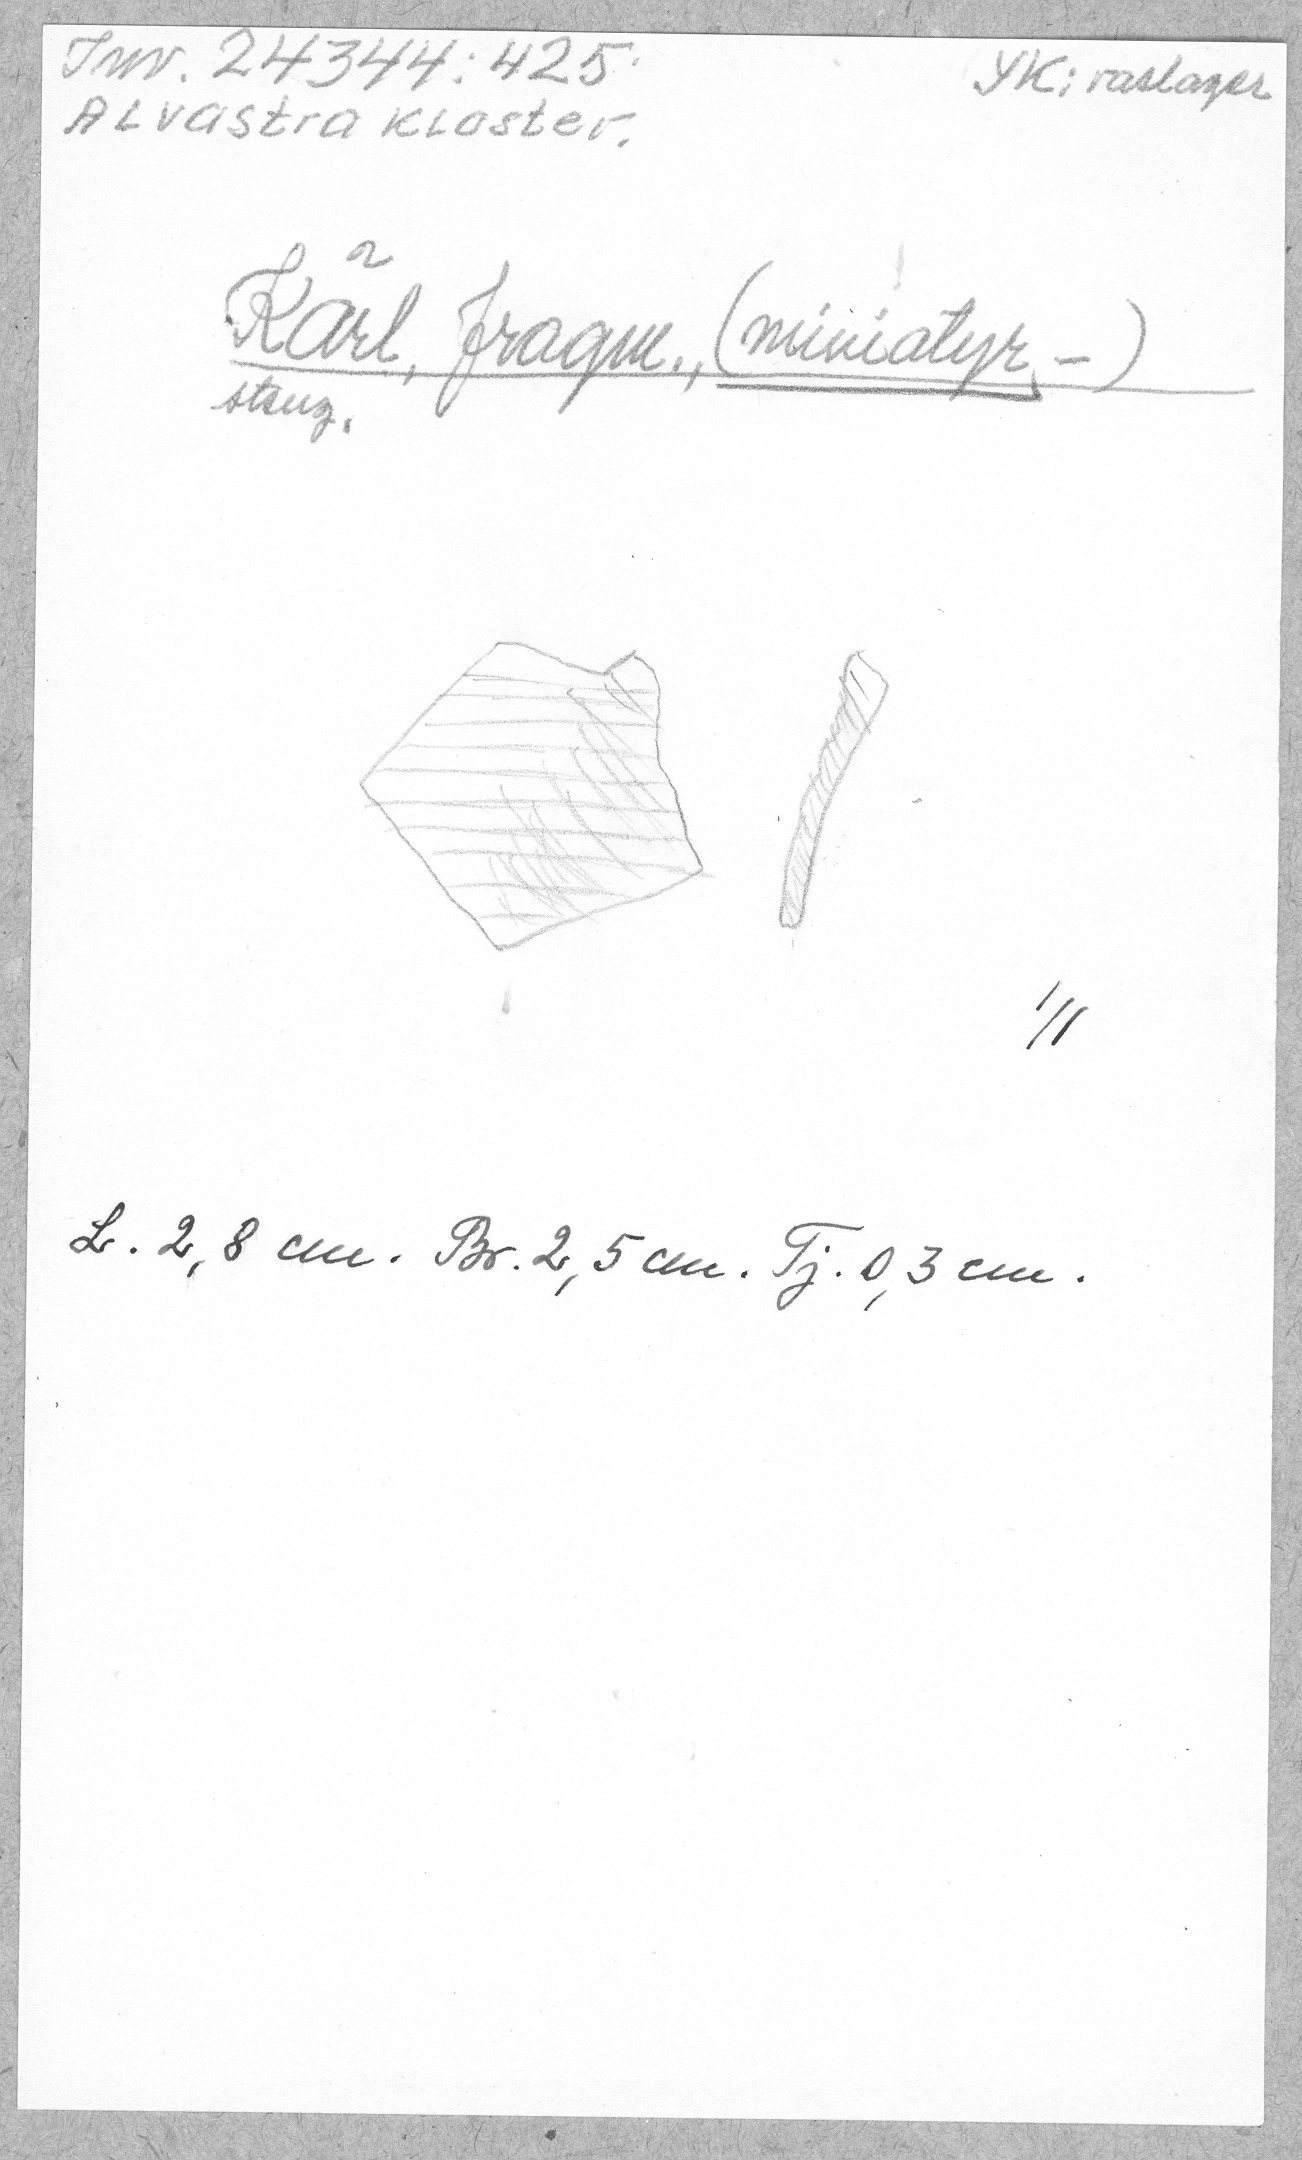 Inv. 24344:425.
YK: raslager
ALvastra kLoster.
Kärl, fragm., (miniatyr, -)
steng.
1/1
L. 2,8 cm. Br. 2,5 cm. Tj. 0,3 cm.